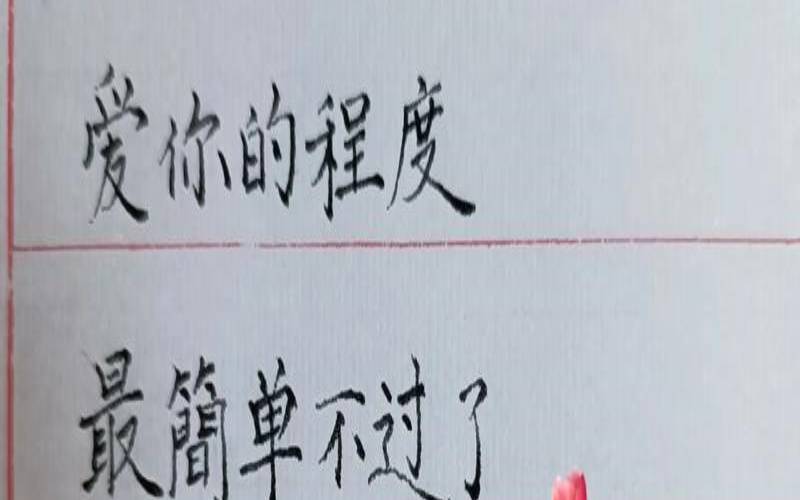 爱你的程度
最簡单不过了